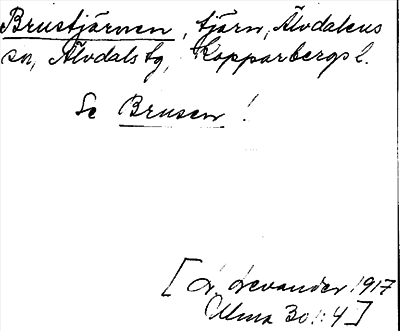 Brustjärnen, tjärn, Älvdalens
sn, Älvdals tg, Kopparbergs l.
Se Brusen!
[L. Levander 1917
Ulma 301:4]